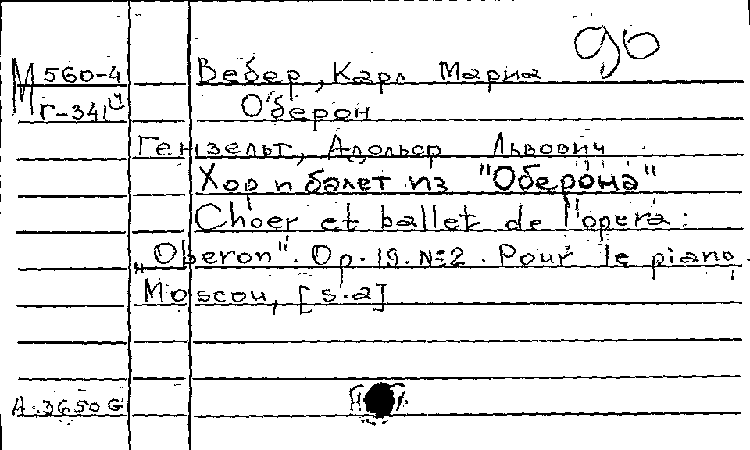 90
М 560-4 Вебер, Карл Мариа
Г-341 Оберон
Гензельт, Адольф Львович
Хор и балет из "Оберона"
Choer et ballet de l'opera:
„Oberon". Op. 19. №2. Pour le piano.
Moscou, [s.a]
А-3650